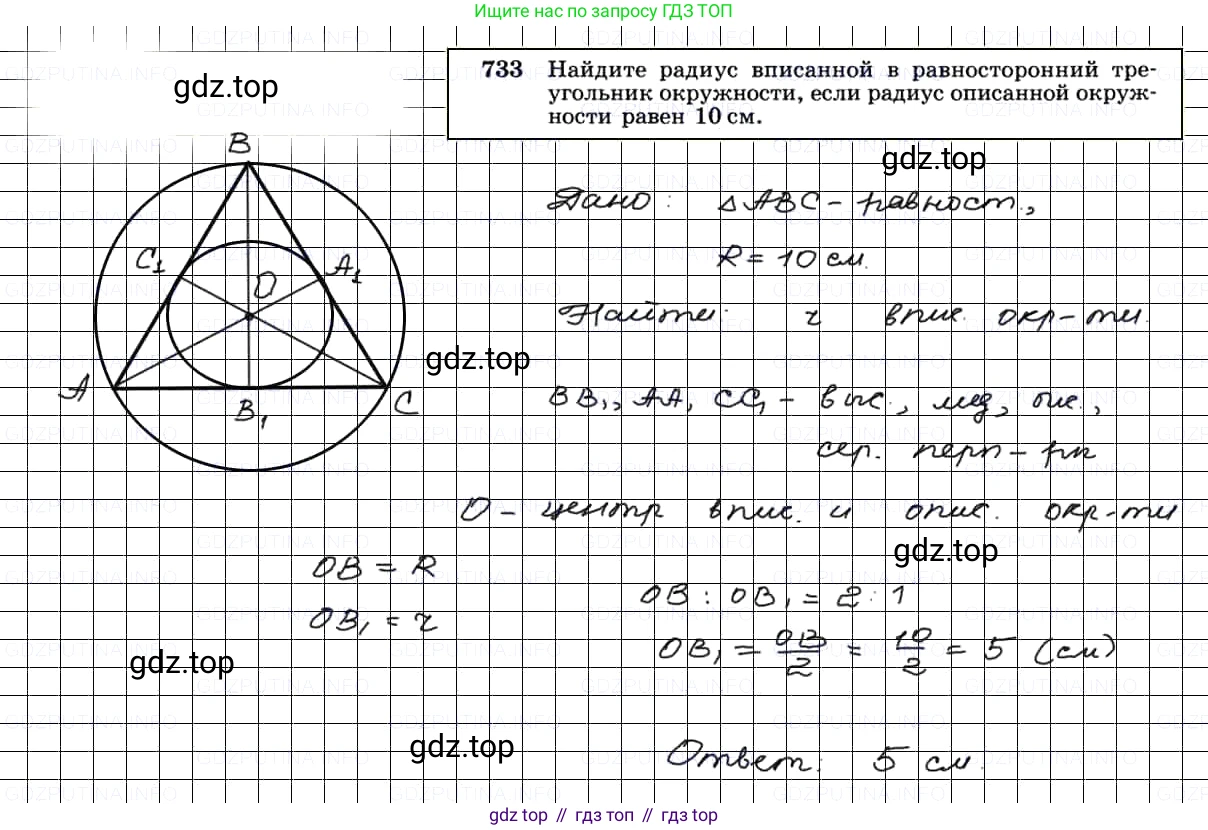 Ищите нас по запросу ГДЗ ТОП
gdz.top
733 Найдите радиус вписанной в равносторонний тре-
угольник окружности, если радиус описанной окруж-
ности равен 10 см.
gdz.top
B
Дано: △ABC - равност.,
C₁
A₁
R = 10 см.
O
Найти: r впис. окр-ти.
gdz.top
A
B₁
C
BB₁, AA₁ CC₁ - выс., мед, бис.,
сер. перп-ры
O - центр впис. и опис. окр-ти
gdz.top
OB = R
OB : OB₁ = 2 : 1
OB₁ = r
OB₁ = OB/2 = 10/2 = 5 (см)
gdz.top
gdz.top
Ответ: 5 см.
gdz top // гдз топ // gdz top
GDZPUTINA.INFO